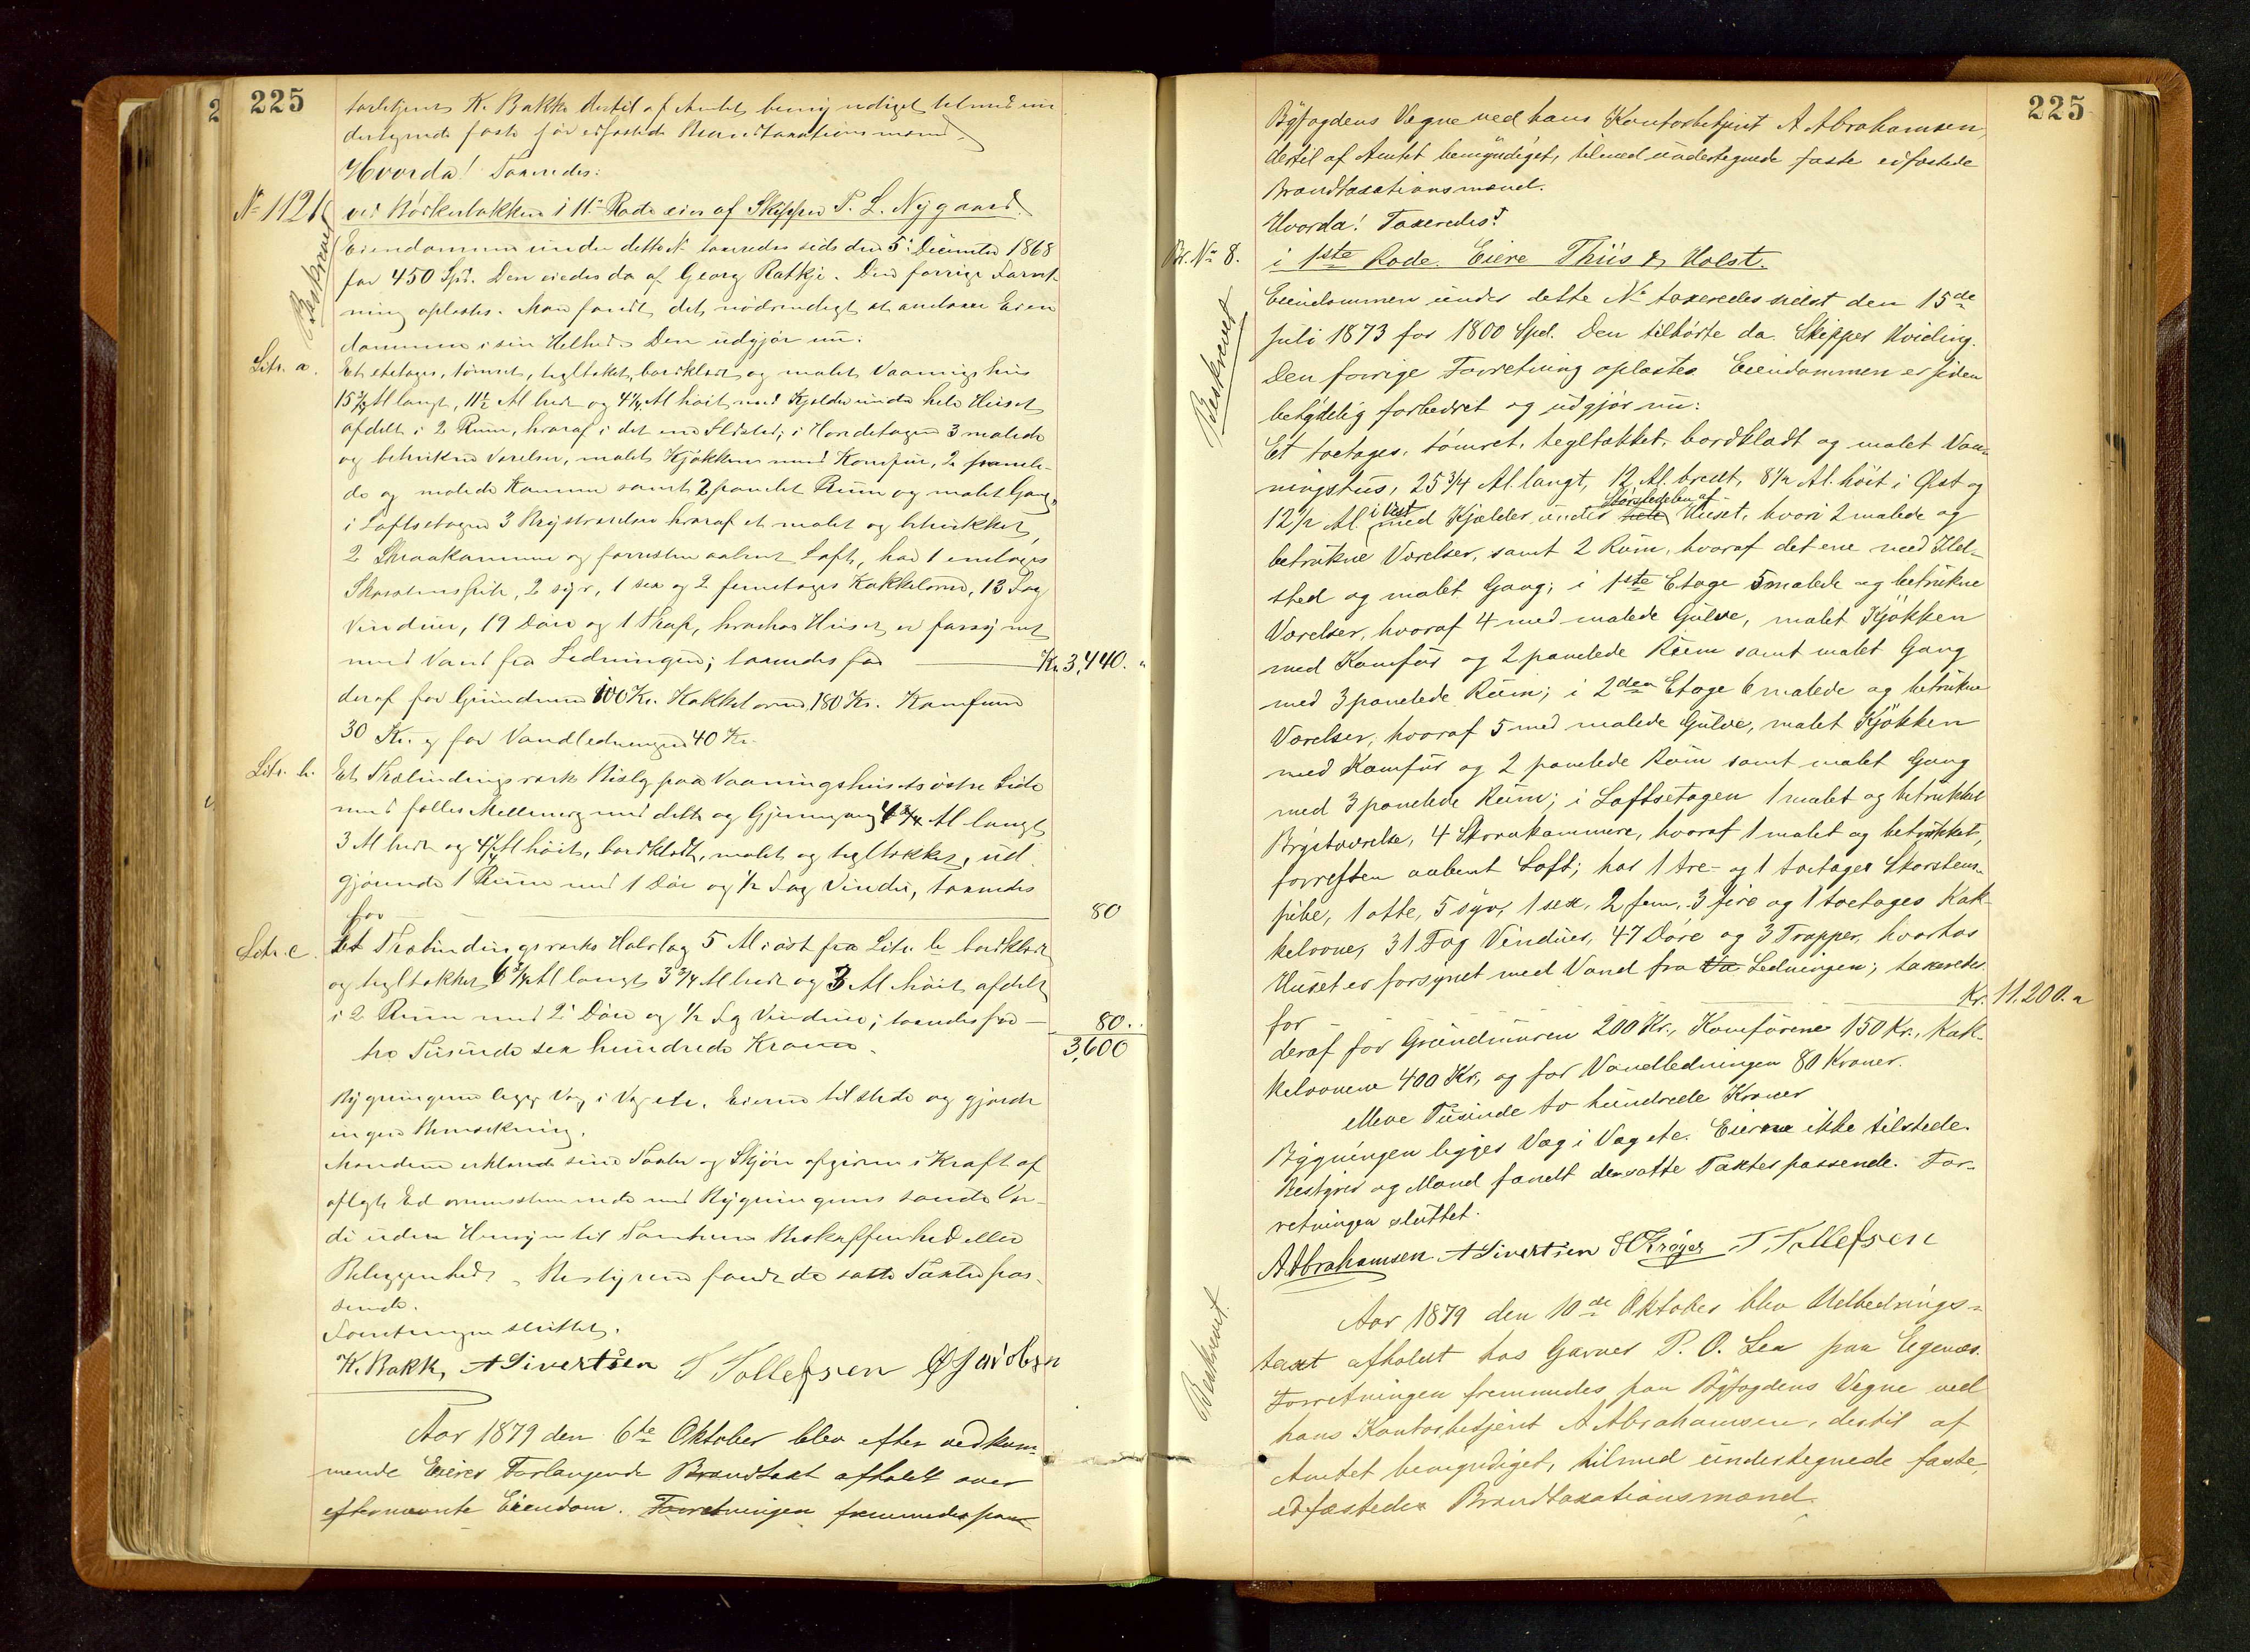 225
torbetjent K. Bakke dertil af Amtet bemyndiget tilmed un
dertegnede faste før edfæstede Brandtaxationsmænd.
Hvorda! Taxeredes:
No 1121
ved Kirkebakken i 11te Rode eies af Skipper P. L. Nygaard.
Beskrevet
Eiendommen under dette No taxeredes sidst den 5te December 1868
for 450 Spd. Den eiedes da af Georg Ratkje. Den forrige Forret-
ning oplæstes. Man fandt det nødvendigt at omtaxere Eien
dommen i sin Helhed. Den udgjør nu:
Litr. a.
Et etetages, tømret, tegltækket, bordklædt og malet Vaaningshus
15 3/4 Al langt, 11 1/2 Al bredt og 4 1/4 Al høit, med Kjelder under hele Huset
afdelt i 2 Rum, hvoraf i det ene Ildsted; i Hovedetagen 3 malede
og betrukne Værelser, malet Kjøkken med Komfur, 2 panele-
de og malede Kammer samt 2 panelet Rum og malet Gang,
i Loftsetagen 3 Brystværelser hvoraf et malet og betrukket,
2 Skraakammere og forresten aabent Loft, har 1 entages
Skorstenspibe, 2 syv, 1 sex og 2 femetages Kakkelovne, 13 Fag
Vinduer, 19 Døre og 1 Trap, hvorhos Huset er forsynet
med Vand fra Ledningen; taxeredes for Kr. 3,440. "
deraf for Grundmuren 100 Kr. Kakkelovnene 180 Kr. Komfuren
30 Kr. og for Vandledningen 40 Kr.
Litr. b.
Et Træbindingsværks Bislag paa Vaaningshusets østre Side
med fælles Mellemvæg med dette og Gjennemgang 4 3/4 Al langt
3 Al bredt og 4 1/4 Al høit, bordklædt, malet og tegltækket, ud
gjørende 1 Rum med 1 Dør og 1/2 Fag Vindu, taxeredes
for 80
Litr. c.
Et Træbindingsværks Halvtag 5 Al i øst fra Litr. b bordklædt
og tegltækket 6 3/4 Al langt 3 3/4 Al bredt og 3 Al høit afdelt
i 2 Rum med 2 Døre og 1/2 Fag Vinduer; taxeredes for 80..
tre Tusinde sex hundrede Kroner. 3,600
Bygningerne ligger Væg i Væg etc. Eieren tilstede og gjorde
ingen Bemærkning.
Mændene erklærede sine Taxter og Skjøn afgivne i Kraft af
aflagt Ed overensstemmende med Bygningens sande Vær-
di uden Hensyn til Tomtens Beskaffenhed eller
Beliggenhed. Bestyreren fandt de satte Taxter pas-
sende.
Forretningen sluttet.
K. Bakke, A Sivertsen T Tollefsen O Jacobsen
Aar 1879 den 6te Oktober blev efter vedkom-
mende Eieres Forlangende Brandtaxt afholdt over
efternævnte Eiendom. Forretningen fremmedes paa
225
Byfogdens Vegne ved hans Kontorbetjent A Abrahamsen,
dertil af Amtet bemyndiget, tilmed undertegnede faste edfæstede
Brandtaxationsmænd.
Hvorda! Taxeredes:
Br. No 8.
i 1ste Rode. Eiere Thiis & Holst.
Beskrevet
Eiendommen under dette No taxeredes sidst den 15de
Juli 1873 for 1800 Spd. Den tilhørte da Skipper Hviding.
Den forrige Forretning oplæstes. Eiendommen er siden
betydelig forbedret og udgjør nu:
Et toetages, tømret, tegltækket, bordklædt og malet Vaa-
ningshus, 25 3/4 Al. langt, 12 Al. bredt, 8 1/2 Al. høit i Øst og
12 1/2 Al. i Vest med Kjælder under Størstedelen af hele Huset, hvori 2 malede og
betrukne Værelser, samt 2 Rum, hvoraf det ene med Ild-
sted og malet Gang; i 1ste Etage 5 malede og betrukne
Værelser, hvoraf 4 med malede Gulve, malet Kjøkken
med Komfur og 2 panelede Rum samt malet Gang
med 3 panelede Rum; i 2den Etage 6 malede og betrukne
Værelser, hvoraf 5 med malede Gulve, malet Kjøkken
med Komfur og 2 panelede Rum samt malet Gang
med 3 panelede Rum; i Loftsetagen 1 malet og betrukket
Brystværelse, 4 Skraakammere, hvoraf 1 malet og betrukket,
forresten aabent Loft; har 1 tre- og 1 toetages Skorstens-
pibe, 1 otte, 5 syv, 1 sex, 2 fem, 3 fire og 1 toetages Kak-
kelovne, 31 Fag Vinduer, 47 Døre og 3 Trapper, hvorhos
Huset er forsynet med Vand fra Va Ledningen; taxeredes
for Kr. 11.200. "
deraf for Grundmuren 200 Kr., Komfurene 150 Kr., Kak-
kelovnene 400 Kr, og for Vandledningen 80 Kroner.
elleve Tusinde to hundrede Kroner
Bygningen ligger Væg i Væg etc. Eierne ikke tilstede.
Bestyrer og Mænd fandt de satte Taxter passende. For-
retningen sluttet.
A Abrahamsen A Sivertsen S Krøger T. Tollefsen
Beskrevet.
Aar 1879 den 10de Oktober blev Udbedrings-
taxt afholdt hos Garver P. O. Lea paa Egenæs.
Forretningen fremmedes paa Byfogdens Vegne ved
hans Kontorbetjent A Abrahamsen, dertil af
Amtet bemyndiget, tilmed undertegnede faste,
edfæstede Brandtaxationsmænd.